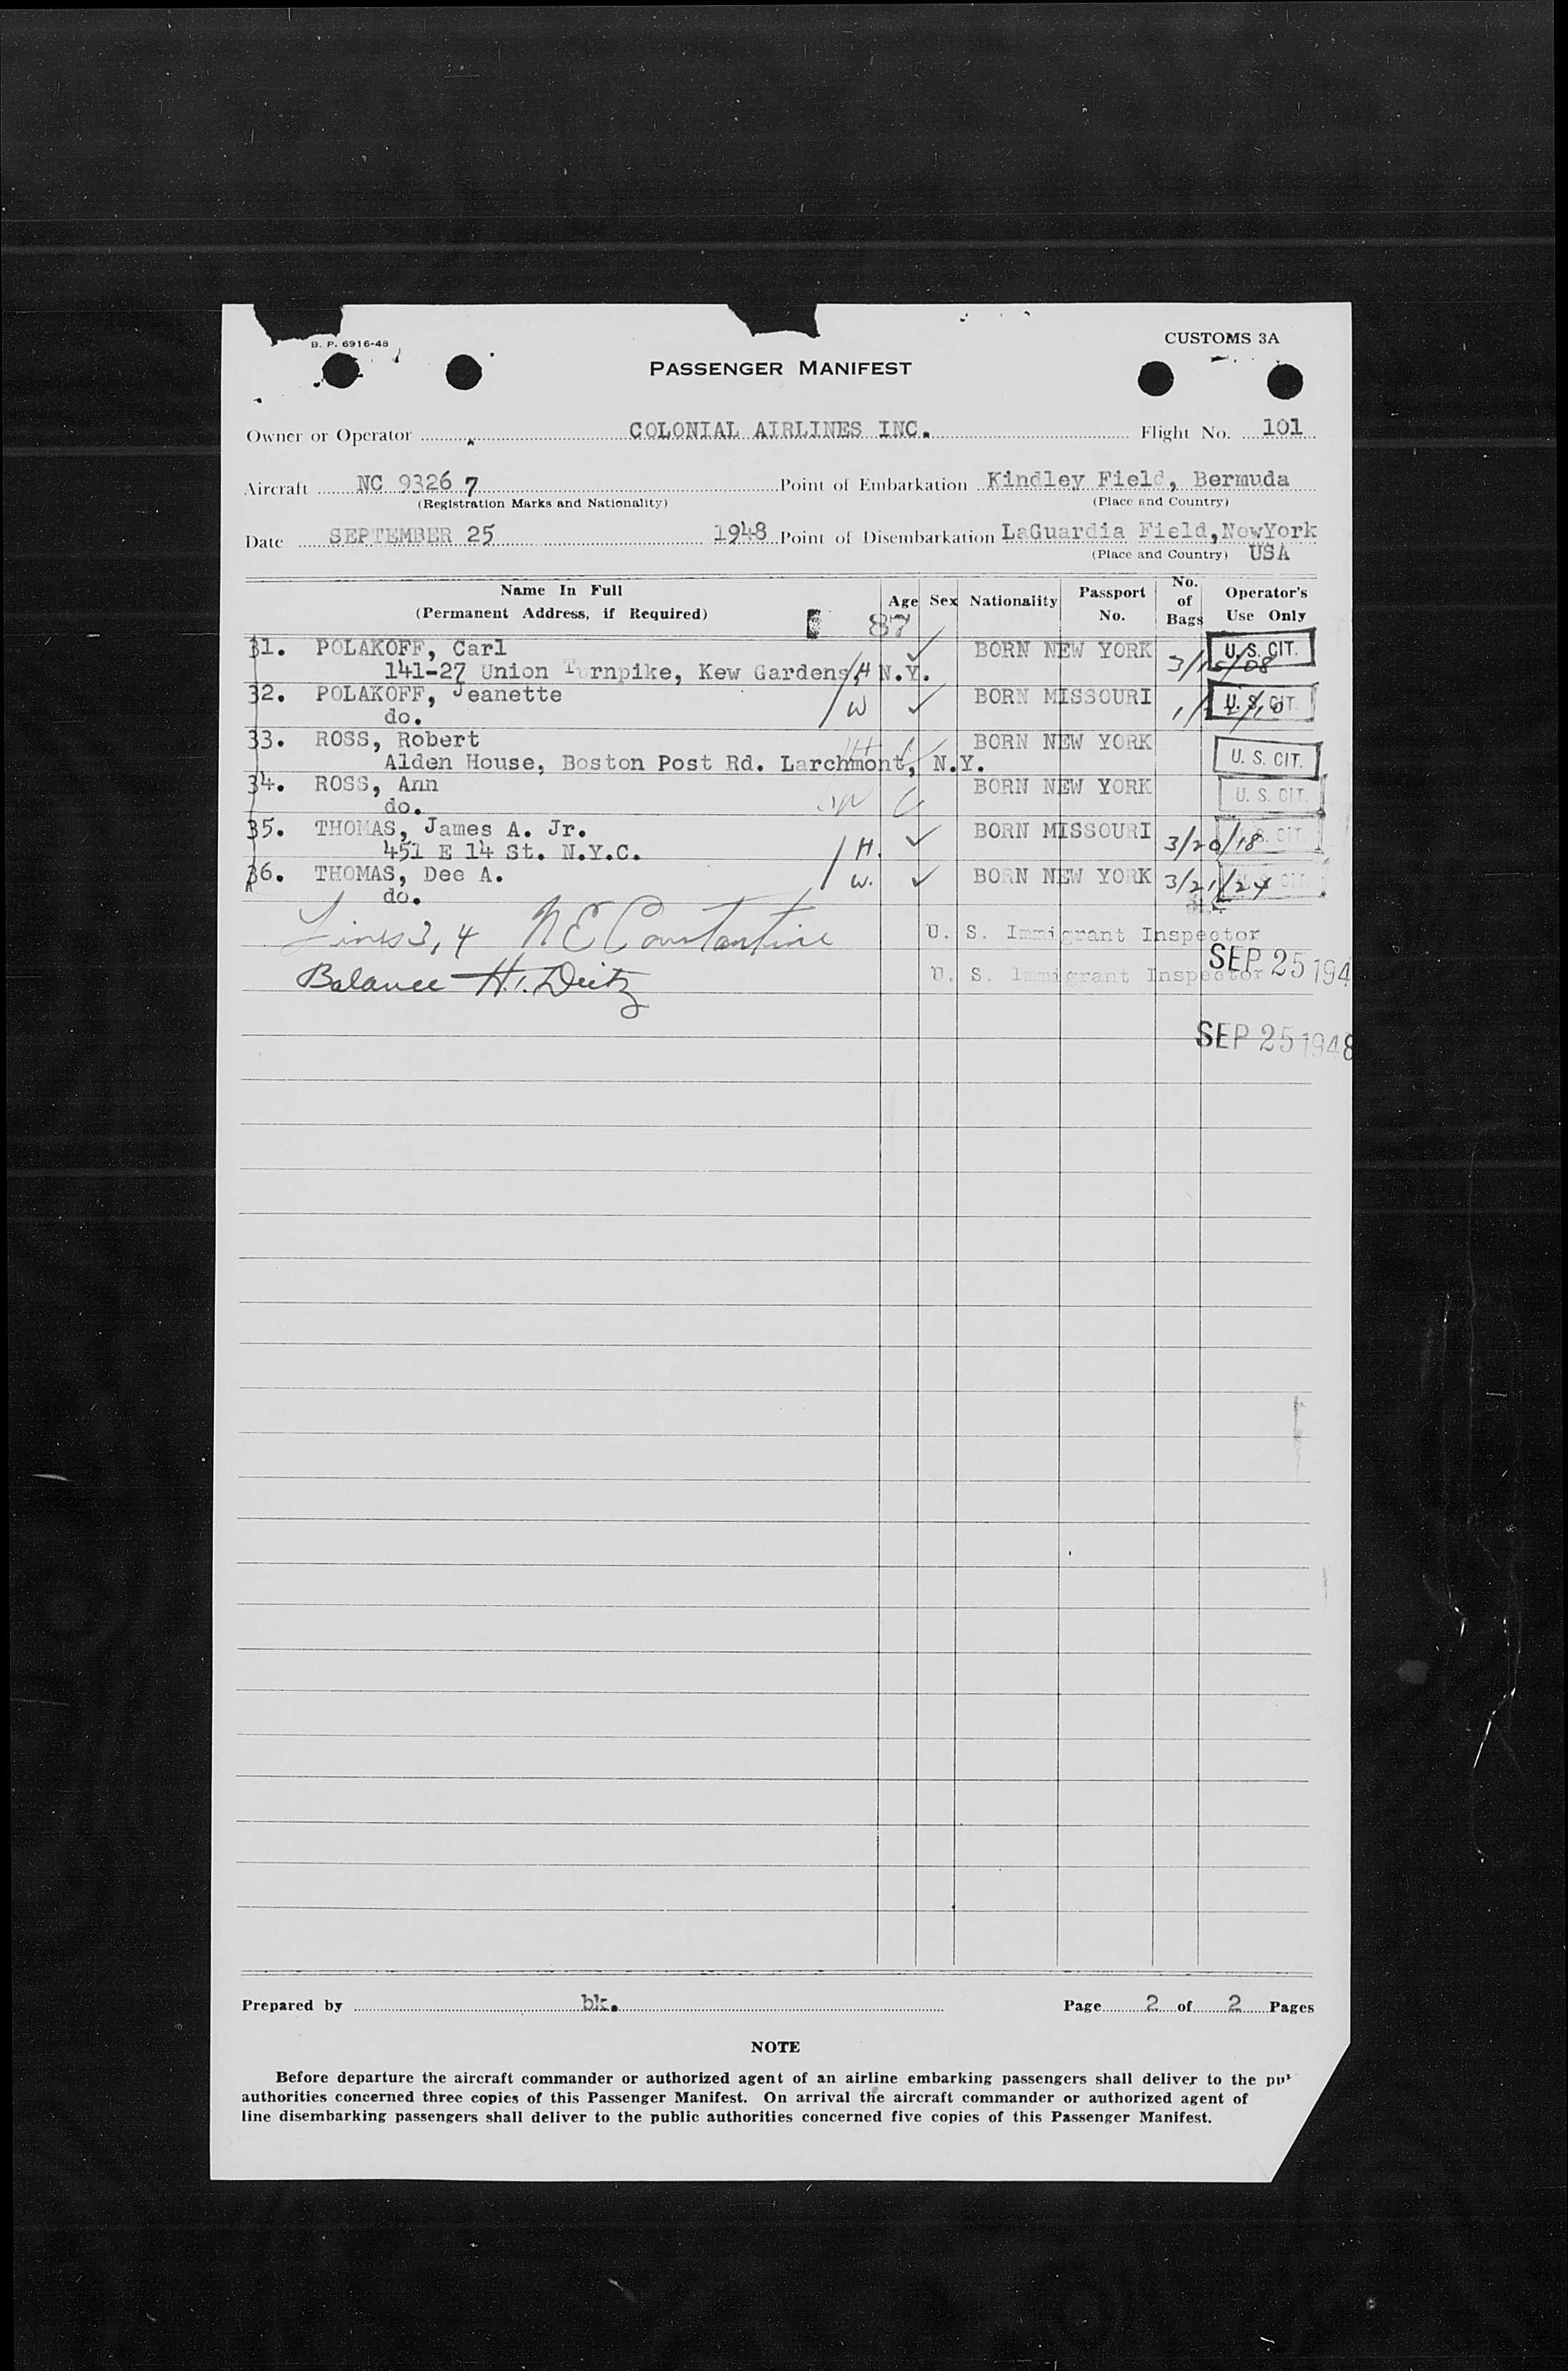 B. P. 6916-48
CUSTOMS 3A
PASSENGER MANIFEST
Owner or Operator COLONIAL AIRLINES INC. Flight No. 101
Aircraft NC 9326 7 Point of Embarkation Kindley Field, Bermuda
(Registration Marks and Nationality) (Place and Country)
Date SEPTEMBER 25 1948 Point of Disembarkation LaGuardia Field, NewYork
(Place and Country) USA
Name In Full (Permanent Address, if Required) Age Sex Nationality Passport No. No. of Bags Operator's Use Only
87
31. POLAKOFF, Carl BORN NEW YORK U. S. CIT.
141-27 Union Turnpike, Kew Gardens, N.Y. H 3/15/08
32. POLAKOFF, Jeanette BORN MISSOURI U. S. CIT.
do. W
33. ROSS, Robert BORN NEW YORK U. S. CIT.
Alden House, Boston Post Rd. Larchmont, N.Y.
34. ROSS, Ann BORN NEW YORK U. S. CIT.
do.
35. THOMAS, James A. Jr. BORN MISSOURI 3/20/18 U. S. CIT.
451 E 14 St. N.Y.C. H.
36. THOMAS, Dee A. W. BORN NEW YORK 3/21/24 U. S. CIT.
do.
Lines 3, 4 N E Constantine U. S. Immigrant Inspector
SEP 25 194
Balance H. Deitz U. S. Immigrant Inspector
SEP 25 1948
Prepared by bk. Page 2 of 2 Pages
NOTE
Before departure the aircraft commander or authorized agent of an airline embarking passengers shall deliver to the
authorities concerned three copies of this Passenger Manifest. On arrival the aircraft commander or authorized agent of
line disembarking passengers shall deliver to the public authorities concerned five copies of this Passenger Manifest.